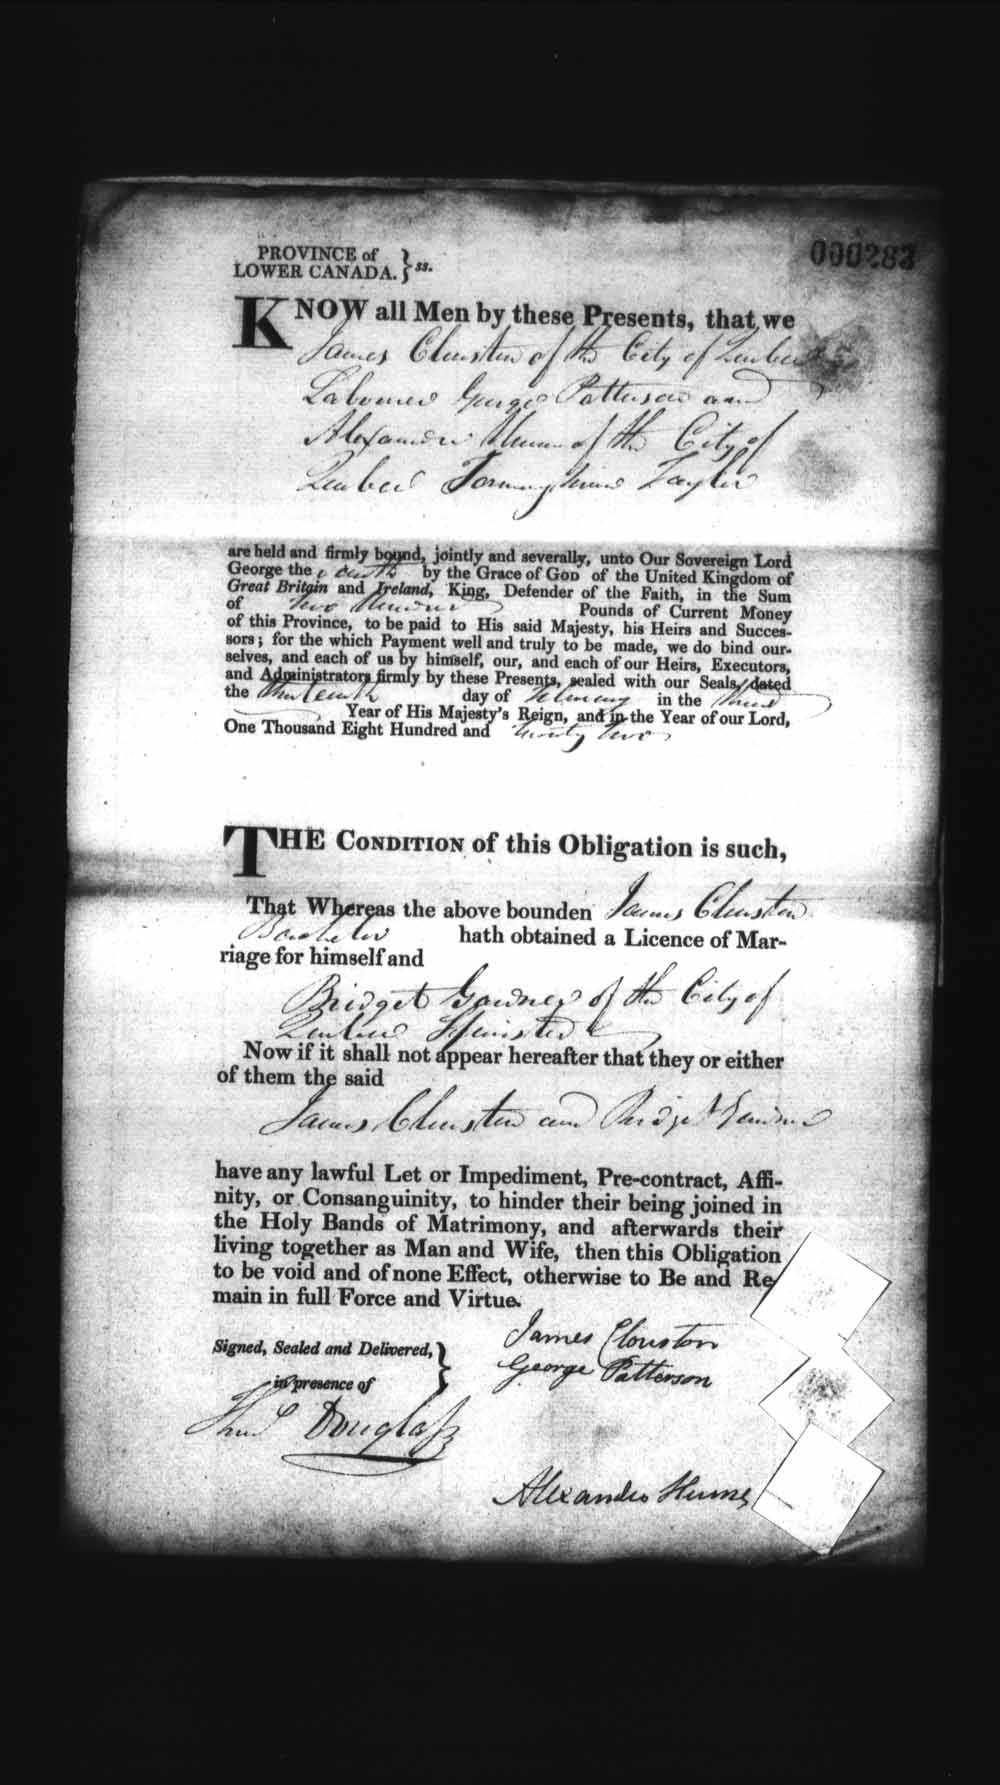 000283
PROVINCE of
LOWER CANADA. } ss.
KNOW all Men by these Presents, that we
James Clouston of the City of Quebec
Labourer George Patterson and
Alexander Hume of the City of
Quebec Taylor
are held and firmly bound, jointly and severally, unto Our Sovereign Lord
George the fourth by the Grace of GOD of the United Kingdom of
Great Britain and Ireland, King, Defender of the Faith, in the Sum
of two hundred Pounds of Current Money
of this Province, to be paid to His said Majesty, his Heirs and Succes-
sors; for the which Payment well and truly to be made, we do bind our-
selves, and each of us by himself, our, and each of our Heirs, Executors,
and Administrators firmly by these Presents, sealed with our Seals, dated
the thirteenth day of February in the third
Year of His Majesty's Reign, and in the Year of our Lord,
One Thousand Eight Hundred and twenty two
THE CONDITION of this Obligation is such,
That Whereas the above bounden James Clouston
Bachelor hath obtained a Licence of Mar-
riage for himself and
Bridget of the City of
Quebec Spinster
Now if it shall not appear hereafter that they or either
of them the said
James Clouston and Bridget
have any lawful Let or Impediment, Pre-contract, Affi-
nity, or Consanguinity, to hinder their being joined in
the Holy Bands of Matrimony, and afterwards their
living together as Man and Wife, then this Obligation
to be void and of none Effect, otherwise to Be and Re-
main in full Force and Virtue.
Signed, Sealed and Delivered, }
in presence of
James Clouston
George Patterson
Douglass
Alexander Hume